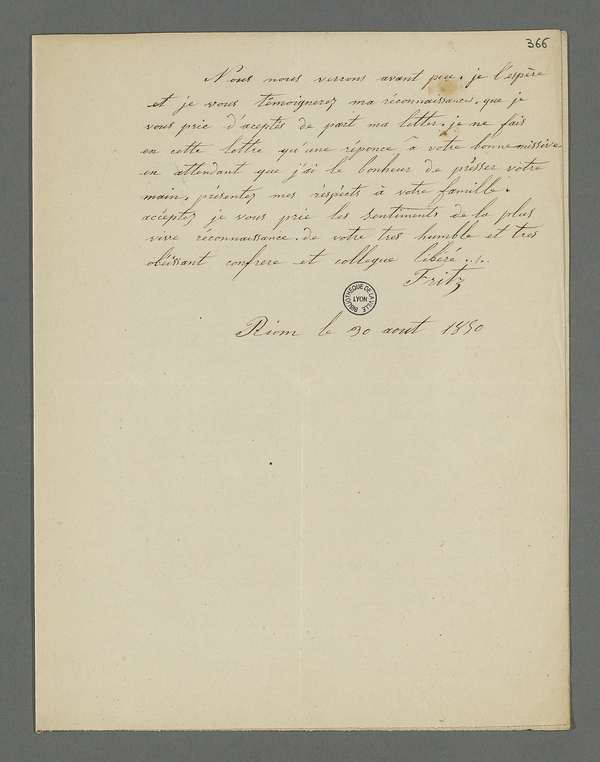 366
Nous nous verrons avant peu. je l'espère
et je vous témoignerez ma réconnaissance. que je
vous prie d'aceptés de part ma letter. je ne fais
en cette lettre qu'une réponce à votre bonne missive
en attendant que j'ai le bonheur de présser votre
main. présentez mes réspécts à votre famille.
acceptez je vous prie les sentiments de la plus
vive réconnaissance. de votre tres humble et tres
obéissant confrere et collegue libéré
Fritz
BIBLIOTHEQUE DE LA VILLE
LYON
Riom le 30 aout 1850